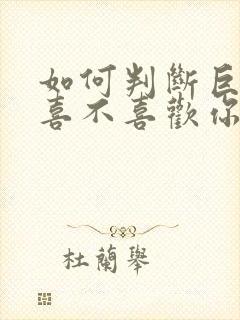 如何判斷巨
喜不喜歡你
杜蘭舉